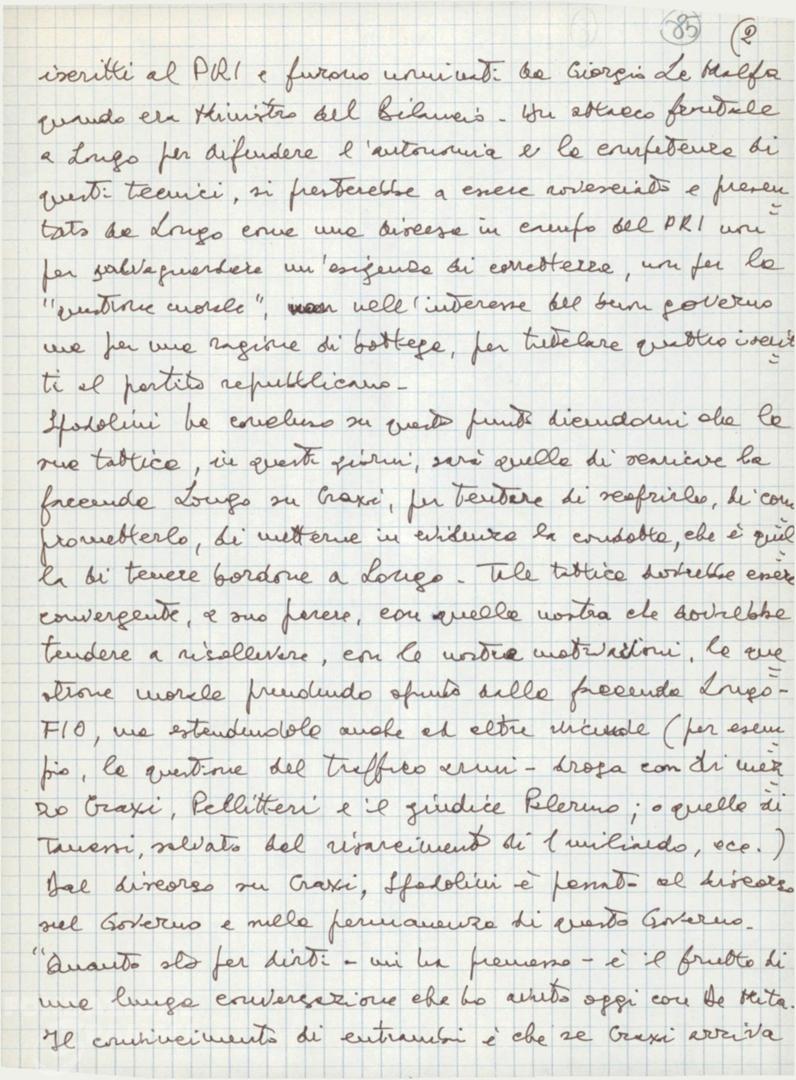 85 (2
iscritti al PRI e furono nominati da Giorgio La Malfa
quando era Ministro del Bilancio - Un attacco frontale
a Longo per difendere l'autonomia e la competenza di
questi tecnici, si presterebbe a essere rovesciato e presen
tato da Longo come una discesa in campo del PRI non
per salvaguardare un'esigenza di correttezza, non per la
"questione morale", non nell'interesse del buon governo
ma per una ragione di bottega, per tutelare quattro iscrit
ti al partito repubblicano -
Spadolini ha concluso su questo punto dicendomi che la
sua tattica, in questi giorni, sarà quella di scaricare la
faccenda Longo su Craxi, per tentare di scoprirlo, di com
prometterlo, di metterne in evidenza la condotta, che è quel
la di tenere bordone a Longo - Tale tattica dovrebbe essere
convergente, a suo parere, con quella nostra che dovrebbe
tendere a risollevare, con le nostre motivazioni, la que
stione morale prendendo spunto dalla faccenda Longo-
FIO, ma estendendola anche ad altre vicende (per esem
pio, la questione del traffico armi - droga con di mez
zo Craxi, Pellitteri e il giudice Palermo; o quella di
Tanassi, salvato dal risarcimento di 1 miliardo, ecc.)
Dal discorso su Craxi, Spadolini è passato al discorso
sul Governo e sulla permanenza di questo Governo -
"Quanto sto per dirti - mi ha premesso - è il frutto di
una lunga conversazione che ho avuto oggi con De Mita.
Il convincimento di entrambi è che se Craxi arriva